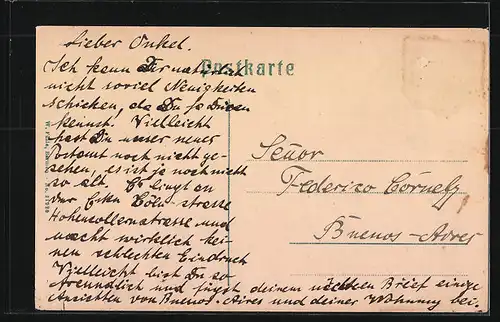 Lieber Onkel.
Postkarte
Ich kann Dir natürlich
nicht soviel Neuigkeiten
schicken, da Du ja
kennst. Vielleicht
hast Du unser neues
Postamt noch nicht ge-
sehen, es ist ja noch nicht
so alt. Es liegt an
der Ecke strasse
Hohenzollernstrasse und
macht wirklich kei-
nen schlechten Eindruck
Vielleicht bist Du so
freundlich und fügst deinem nächsten Brief einige
Ansichten von Buenos-Aires und deiner Wohnung bei.
Señor
Federico
Buenos-Aires